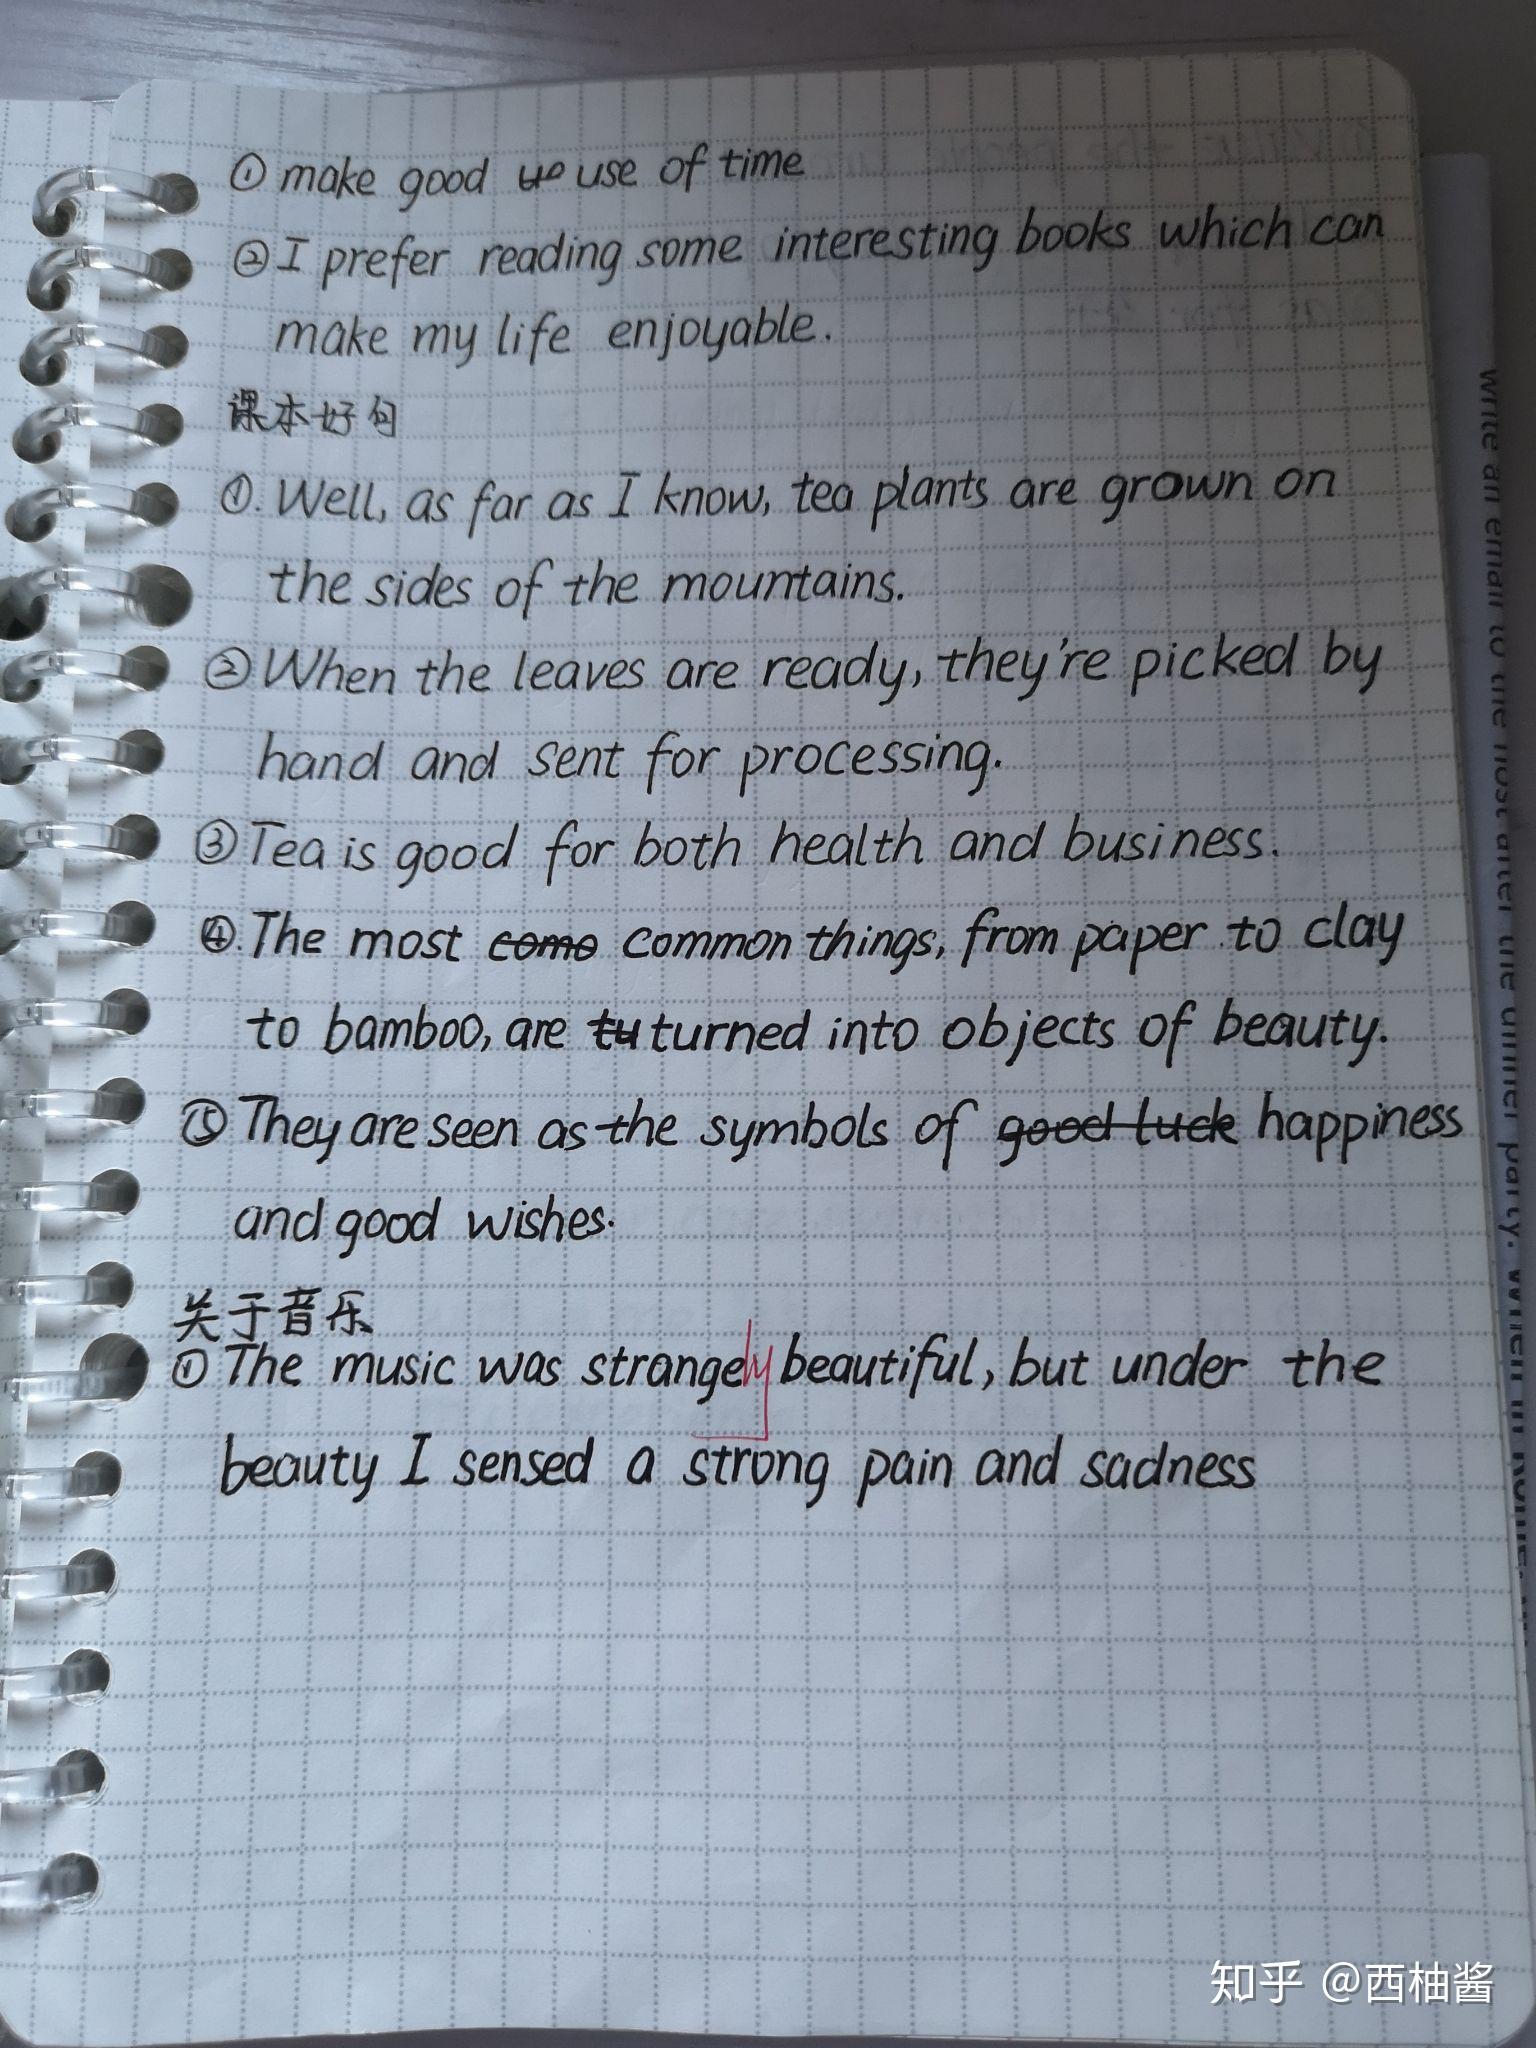 ① make good use of time
② I prefer reading some interesting books which can
make my life enjoyable.
课本好句
①. Well, as far as I know, tea plants are grown on
the sides of the mountains.
② When the leaves are ready, they're picked by
hand and sent for processing.
③ Tea is good for both health and business.
④. The most como common things, from paper to clay
to bamboo, are tu turned into objects of beauty.
⑤ They are seen as the symbols of good luck happiness
and good wishes.
关于音乐
① The music was strangely beautiful, but under the
beauty I sensed a strong pain and sadness
write an email to the host after the dinner party.
知乎 @西柚酱